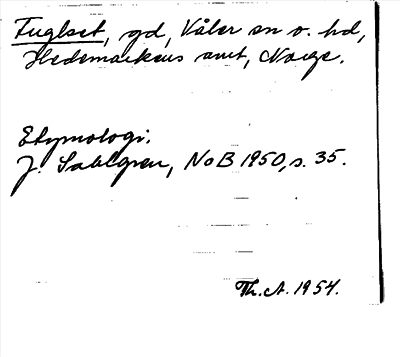 Fuglset, gd, Våler sn o. hd,
Hedemarkens amt, Norge.
Etymologi.
J. Sahlgren, NoB 1950, s. 35.
Th. A. 1954.